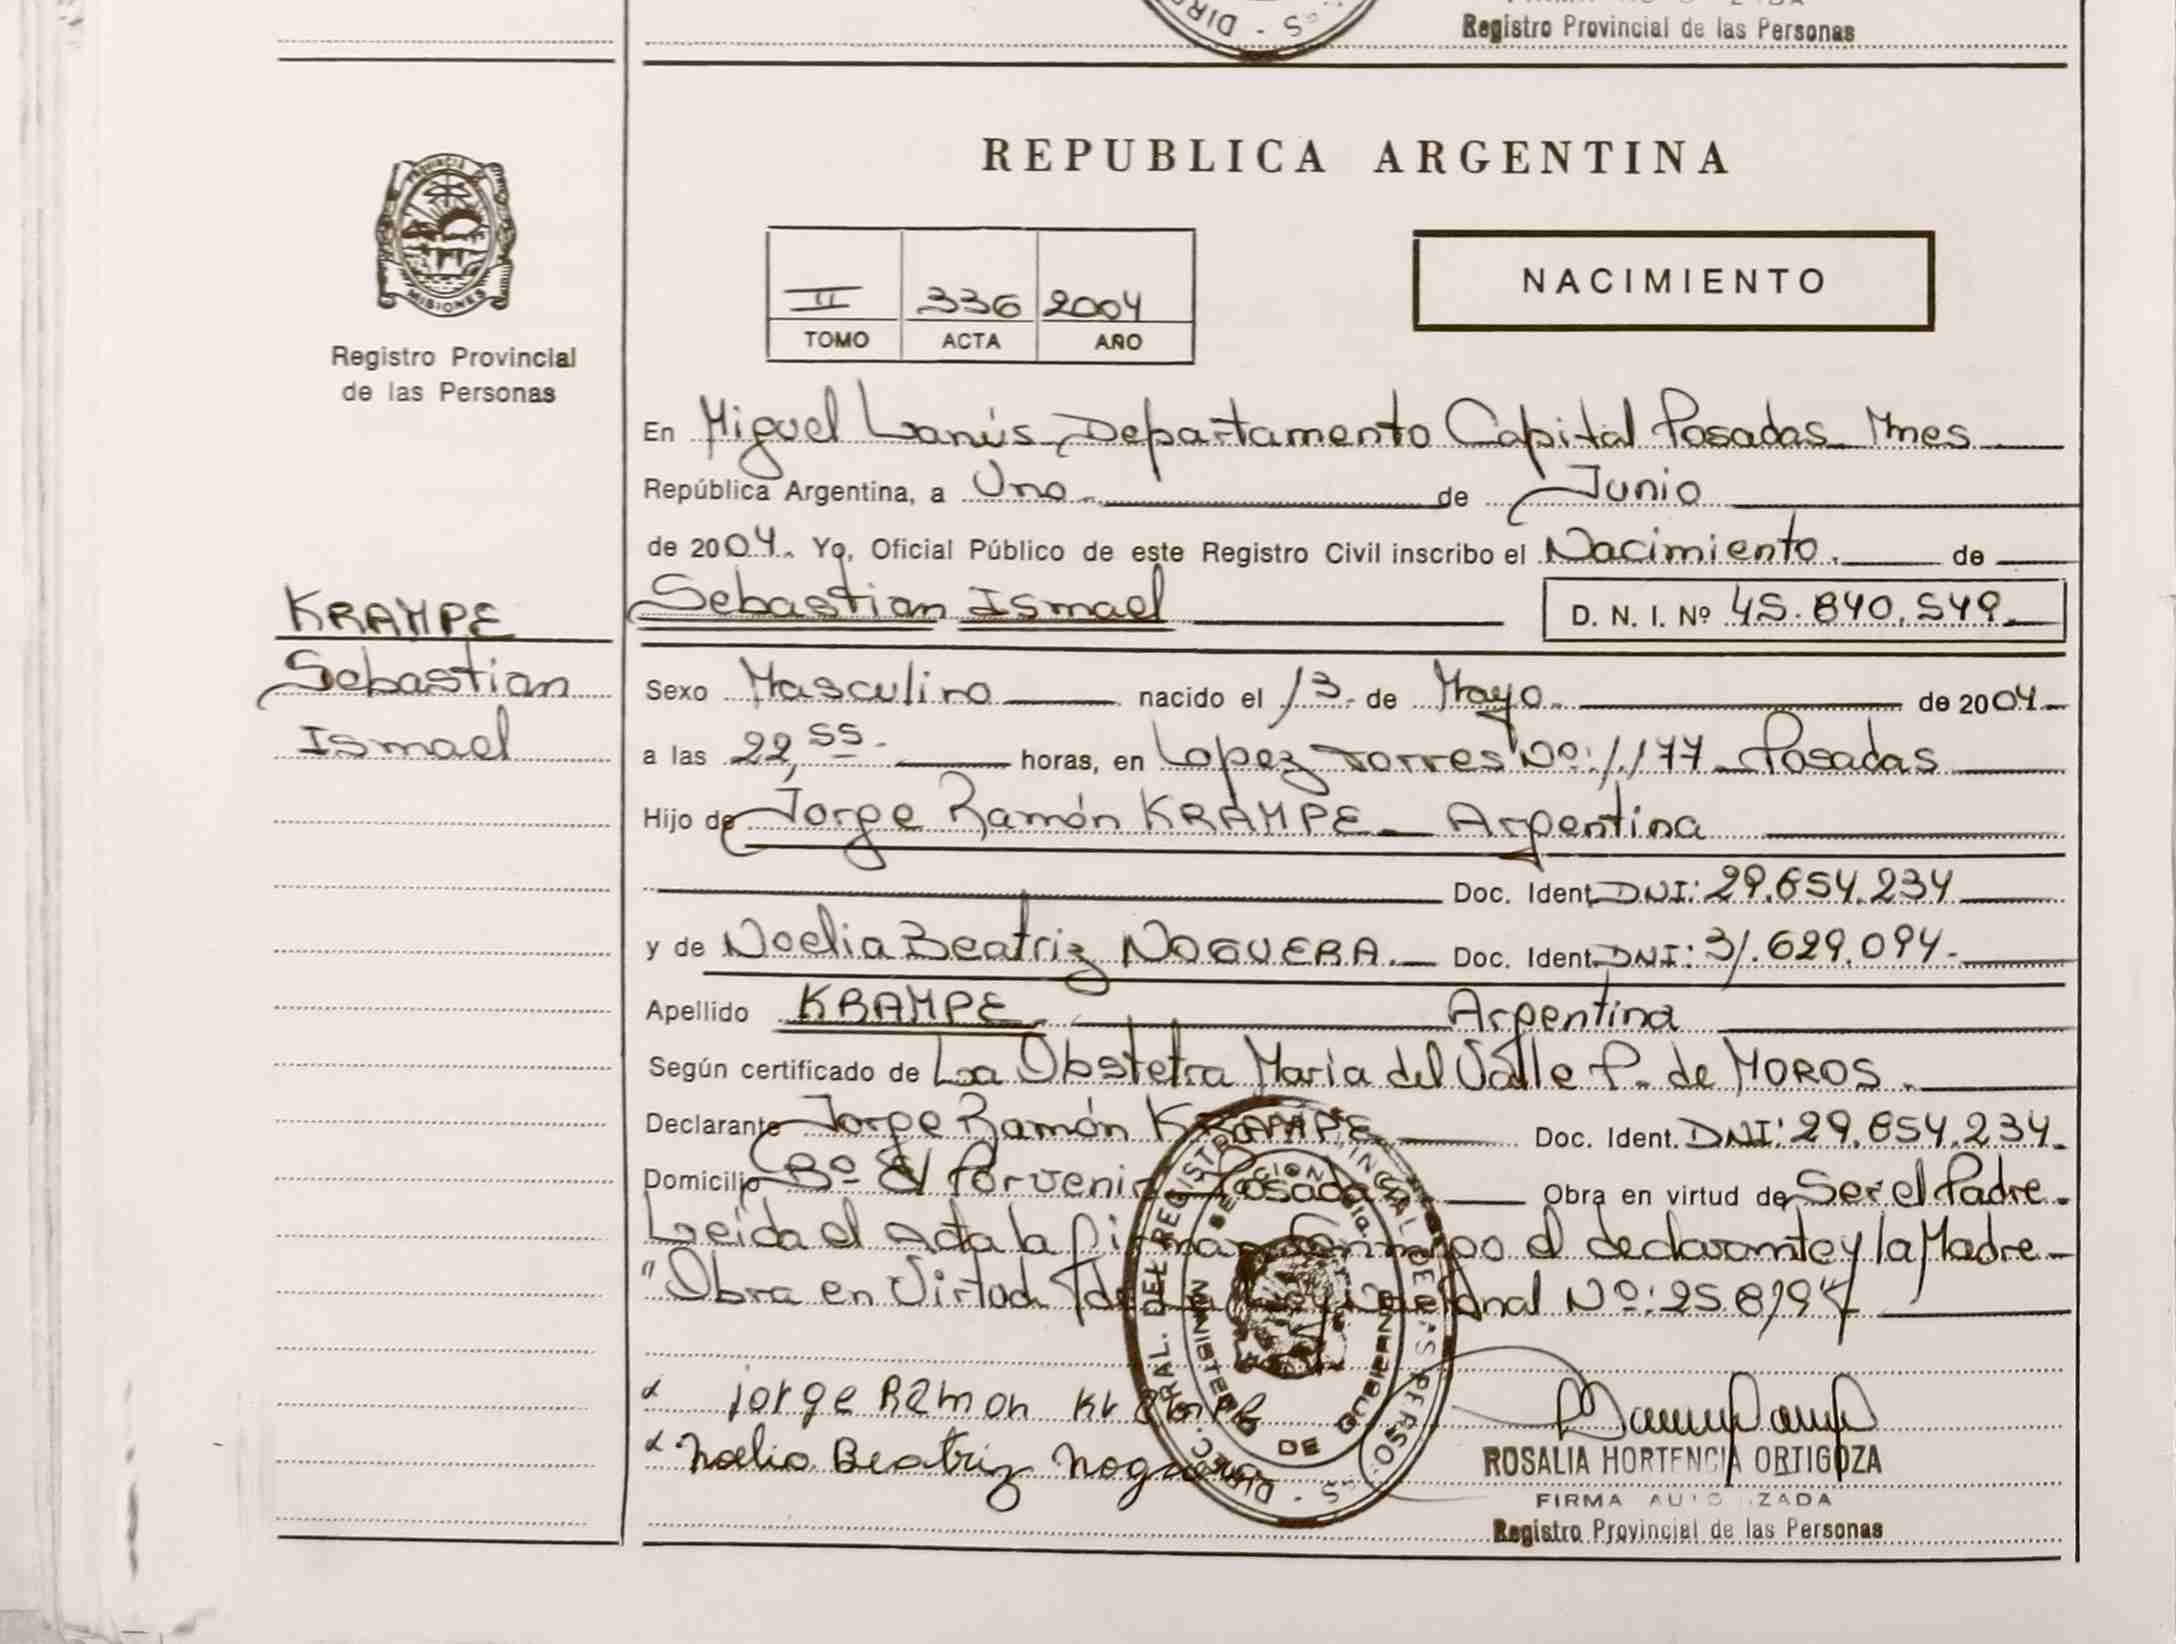 DIR - S
Registro Provincial de las Personas
REPUBLICA ARGENTINA
PROVINCIA DE
MISIONES
Registro Provincial
de las Personas
II 336 2004
TOMO ACTA AÑO
NACIMIENTO
En Miguel Lanús, Departamento Capital Posadas Mnes
República Argentina, a Uno de Junio
de 2004. Yo, Oficial Público de este Registro Civil inscribo el Nacimiento. de
KRAMPE
Sebastian
Ismael
Sebastian Ismael D. N. I. Nº 45.840.549.
Sexo Masculino nacido el 13 de Mayo de 2004
a las 22,55 horas, en Lopez Torres Nº: 1.177 Posadas
Hijo de Jorge Ramón KRAMPE Argentina
Doc. Ident. DNI: 29.654.234
y de Noelia Beatriz NOGUERA. Doc. Ident. DNI: 31.629.094.
Apellido KRAMPE. Argentina
Según certificado de La Obstetra María del Valle P. de MOROS.
Declarante Jorge Ramón KRAMPE Doc. Ident. DNI: 29.654.234.
Domicilio Bº El Porvenir Posadas Obra en virtud de Ser el Padre.
Leída el Acta la firman conmigo el declarante y la Madre
"Obra en Virtud de la Ley Nacional Nº: 25.819"
x jorge Ramon Krampe
x Noelia Beatriz Noguera
DIREC. GRAL. DEL REGISTRO PROVINCIAL DE LAS PERSONAS
MINISTERIO DE GOBIERNO
ROSALIA HORTENCIA ORTIGOZA
FIRMA AUTORIZADA
Registro Provincial de las Personas